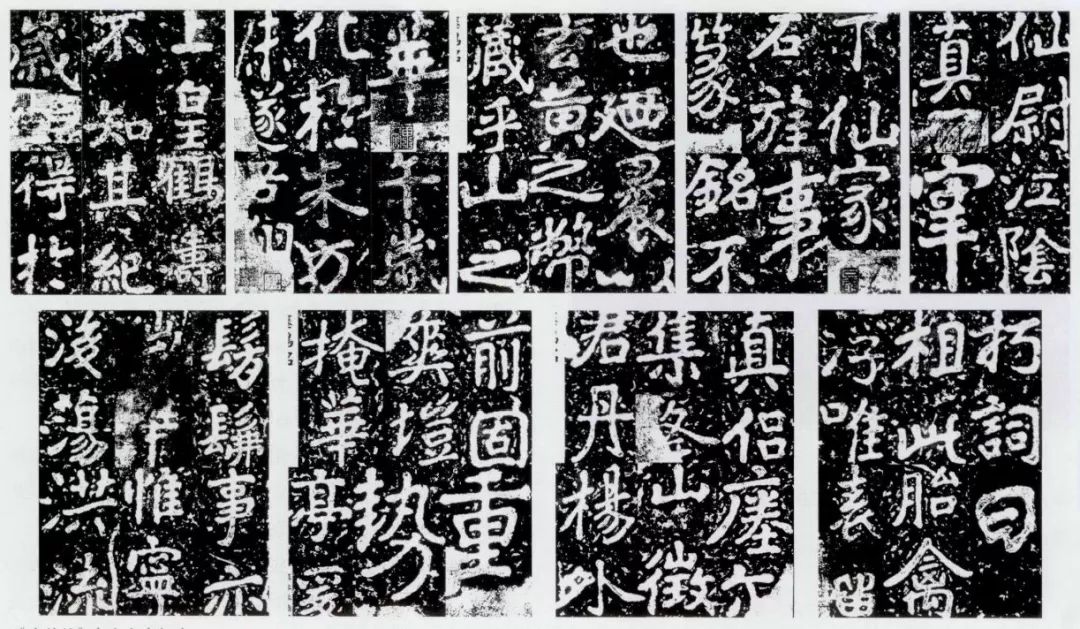 上皇鶴壽
不知其紀
歲得於
華午歲
化於朱方
未遂吾翔
也迺裹以
玄黃之幣
藏乎山之
下仙家
石旌事
篆銘不
仙尉江陰
真宰
髣髴事亦
惟寧
後蕩洪流
前固重
爽塏勢
掩華亭爰
真侶瘞尔
集山徵
君丹楊外
朽詞曰
相此胎禽
浮唯表留